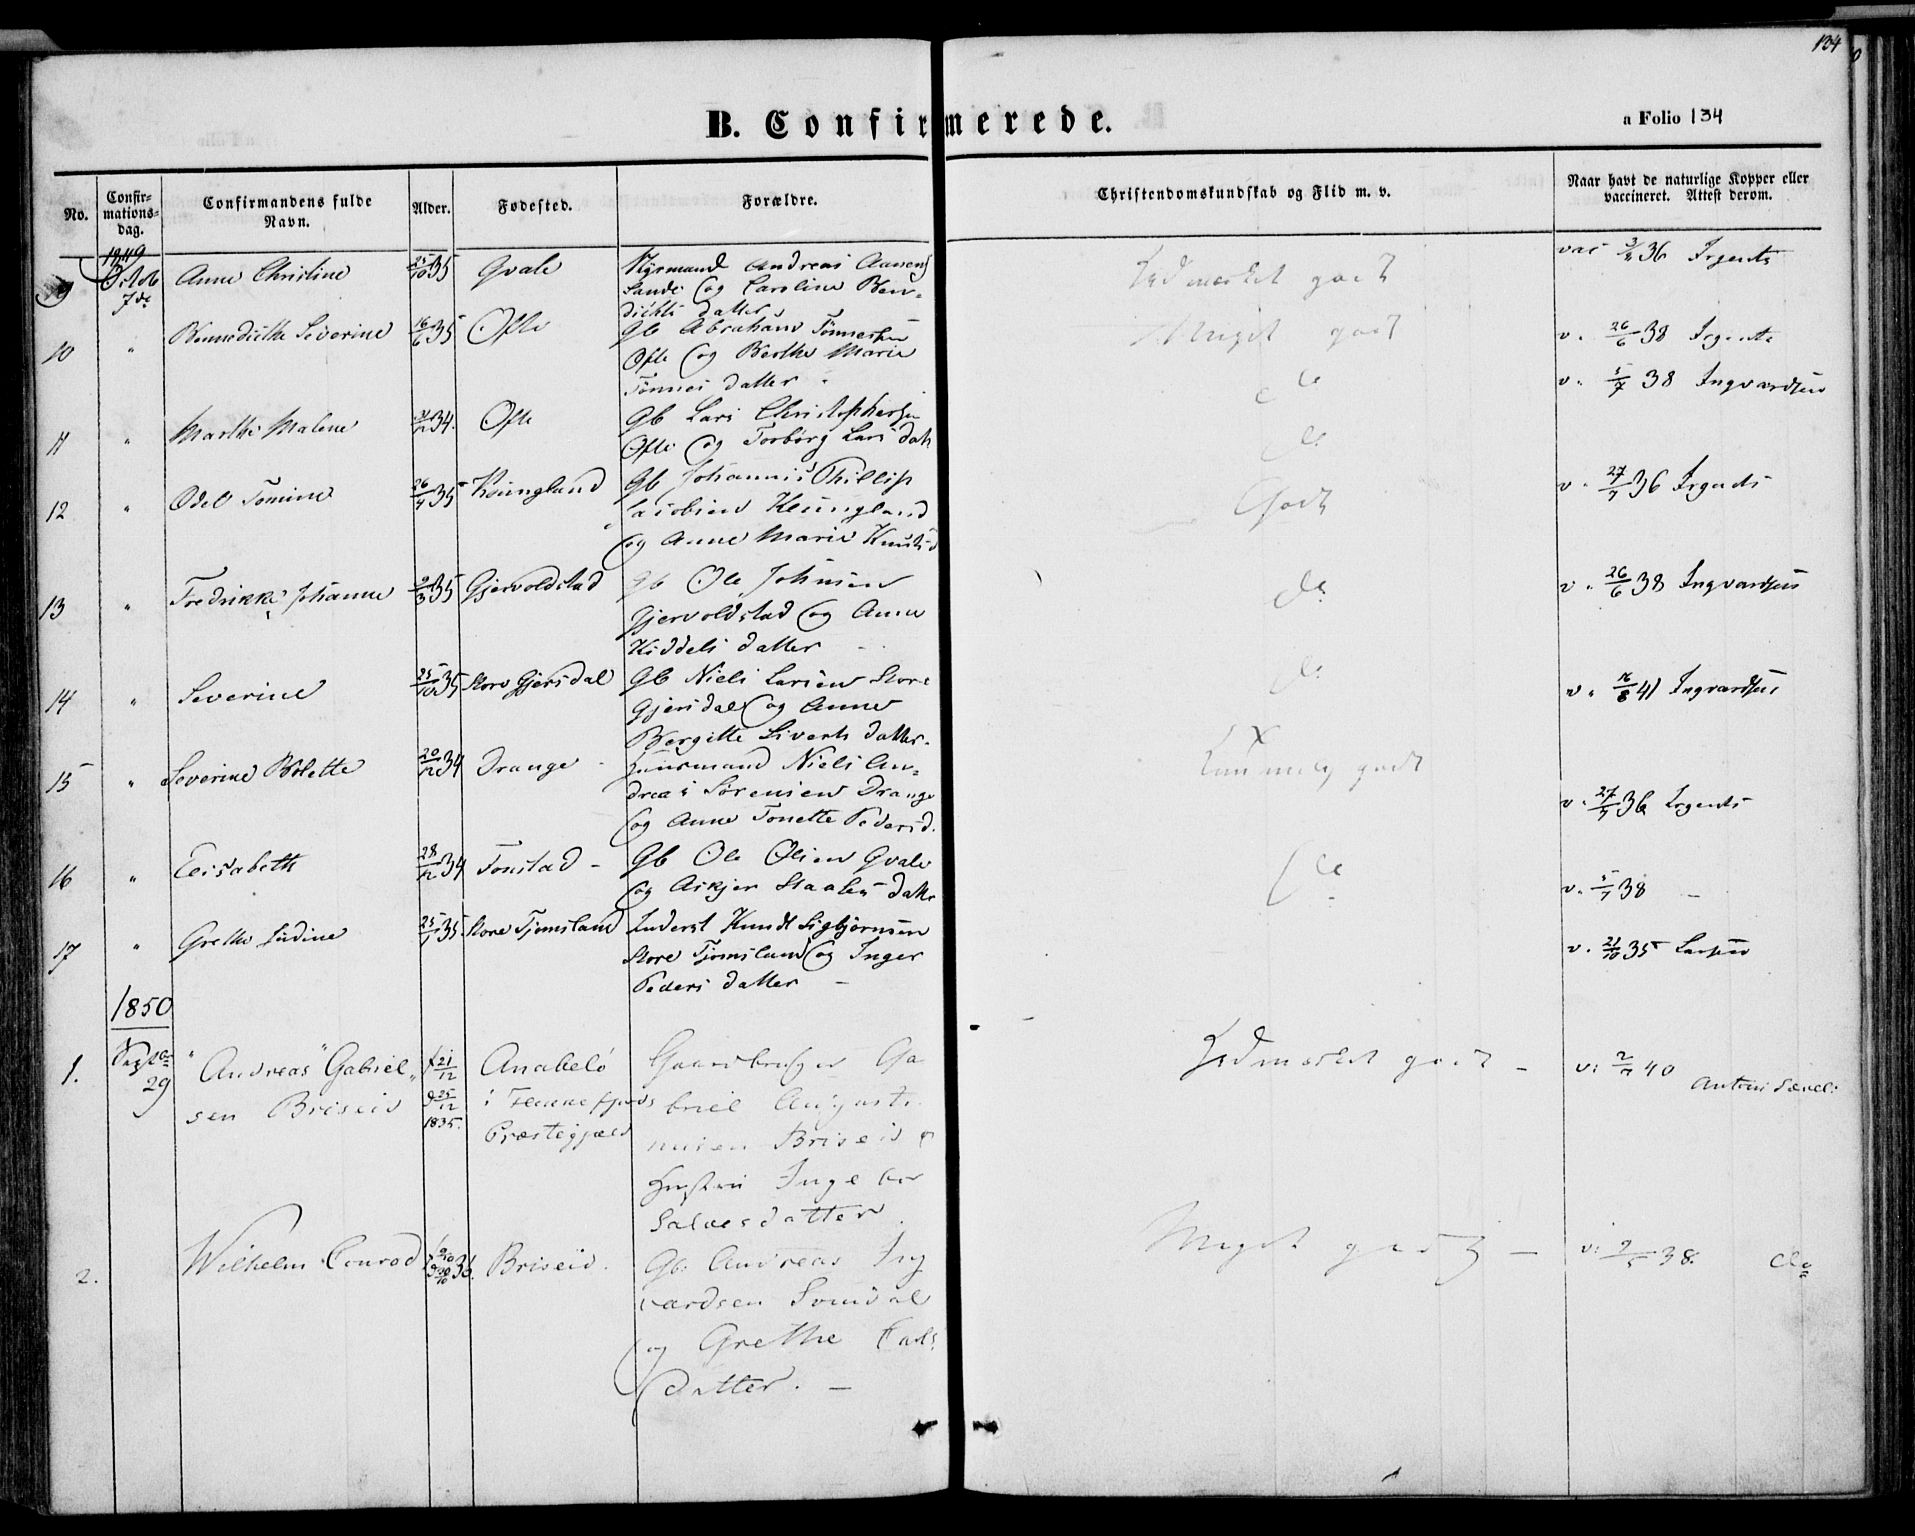 134
B. Confirmerede.
a Folio 134
No.
Confir-
mations-
dag.
Confirmandens fulde
Navn.
Alder.
Fødested.
Forældre.
Christendomskundskab og Flid m. v.
Naar havt de naturlige Kopper eller
vaccineret. Attest derom.
1849
9 Octob 7de Anne Christine 25/10 35 Gvale
Andreas Aanens
Sande og Caroline Ben-
dichts datter
Udmærket godt
vac 3/8 36 Irgents
10 " Bennedicthe Severine 16/6 35 Ofte
Gb Abraham Tønnessen
Ofte og Berthe Marie
Tønnes datter
Meget godt
v. 26/6 38 Irgents
11 " Marthe Malene 34. Ofte
Gb Lars Christophersen
Ofte og Torborg Lars datt
do
v. 5/7 38 Ingvardsen
12 " Odel Tomine 26/4 35 Køungland
Gb Johannis Phillip
Jacobsen Keungland
og Anne Marie Knuts d
do
Godt
v. 27/7 36 Irgents
13 " Fredrikke Johanne 9/3 35 Gjervoldstad
Gb Ole Johnsen
Gjervoldstad og Anne
Kiddels datter
do
v. 26/6 38 Ingvardsen
14 " Severine 25/10 35 Store Gjersdal
Gb Niels Larsen Store
Gjersdal og Anne
Bergitte Siverts datter.
do
v. 16/8 41 Ingvardsen
15 " Severine Bolette 20/12 34 Drange
Huusmand Niels An-
dreas Sørensen Drange
og Anne Tonette Peders d.
x
godt
v. 27/7 36 Irgents
16 " Elisabeth 28/12 34 Fonstad -
Gb Ole Olsen Gvale
og Askjer Staales datter
do
v. 5/7 38 -
17 " Grethe Judine 25/1 35 Store Tjomsland
Inderst Knudt Sigbjørnsen
Store Tjomsland og Inger
Peders datter -
v. 21/10 35 Larsen
1850
1. Septbr 29 "Andreas" Gabriel-
sen Briseid
f 21/12
d 25/12
1835.
Anabelø
i Flekkefjords
Præstegjæld
Gaardbruger Ga
briel Auguste
nusen Briseid &
Hustru Ingebor
Salvesdatter
Udmærket godt -
v: 2/7 40
Antoni Sævel:
2. Wilhelm Conrad 36. Briseid.
Gb. Andreas Ing
vardsen Somdal
og Grethe Carls
datter. -
Meget godt -
v: 9/5 38. do